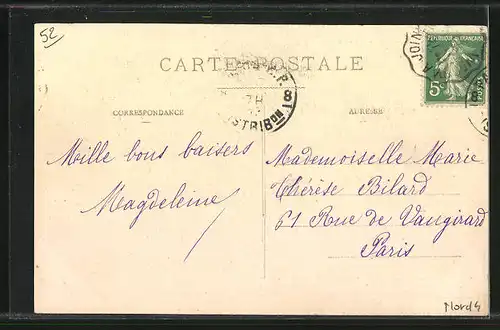 52
CARTE POSTALE
RÉPUBLIQUE FRANÇAISE
5c
POSTES
8
7H
DISTRIBON
CORRESPONDANCE
ADRESSE
Mille bons baisers
Magdeleine
Mademoiselle Marie
Thérèse Bilard
61 Rue de Vaugirard
Paris